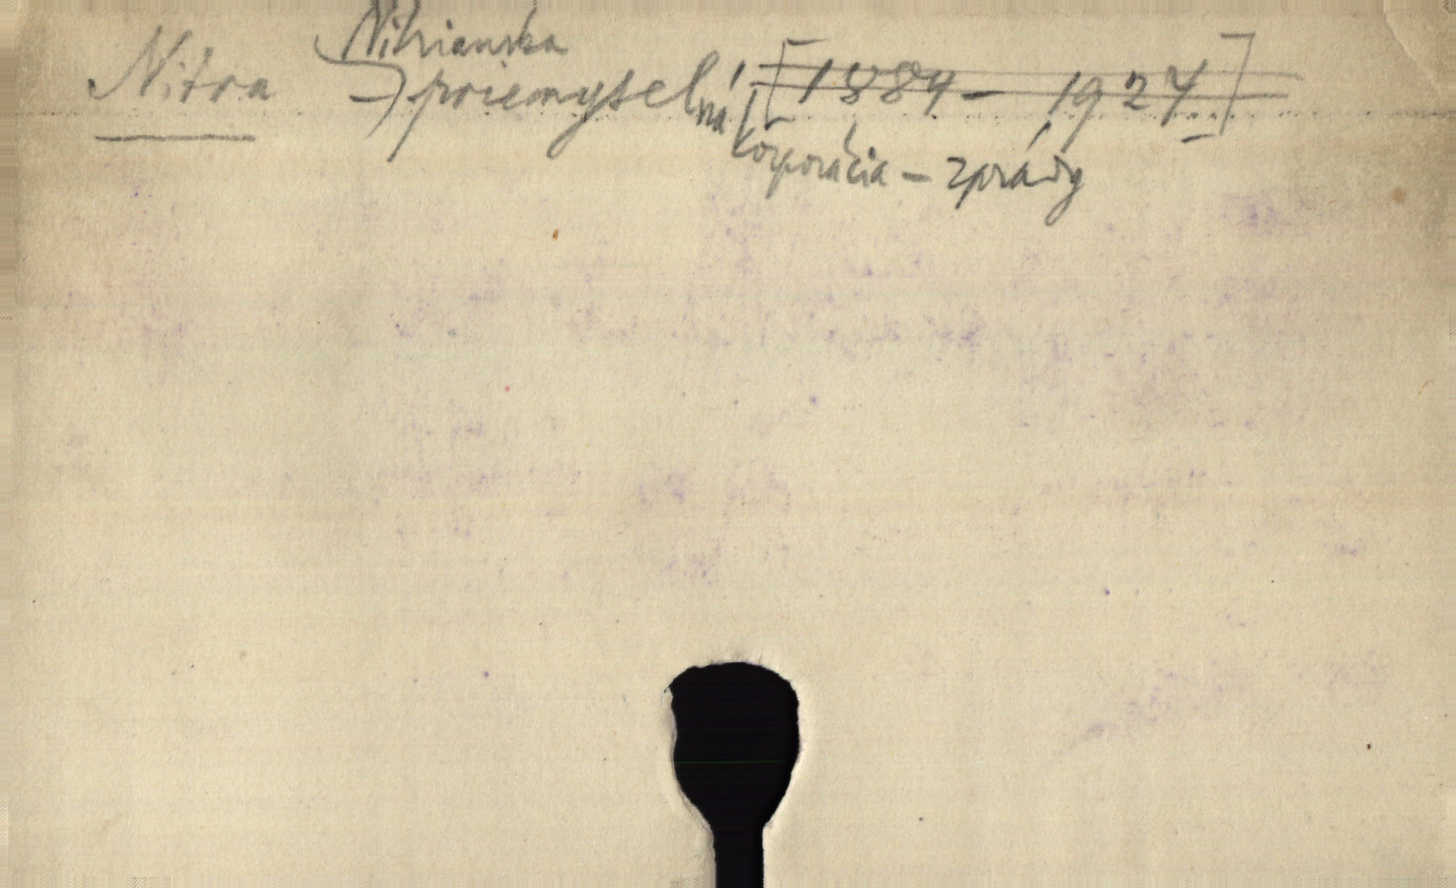 Nitrianska
Nitra priemyselná [1884 - 1927]
korporácia - zprávy